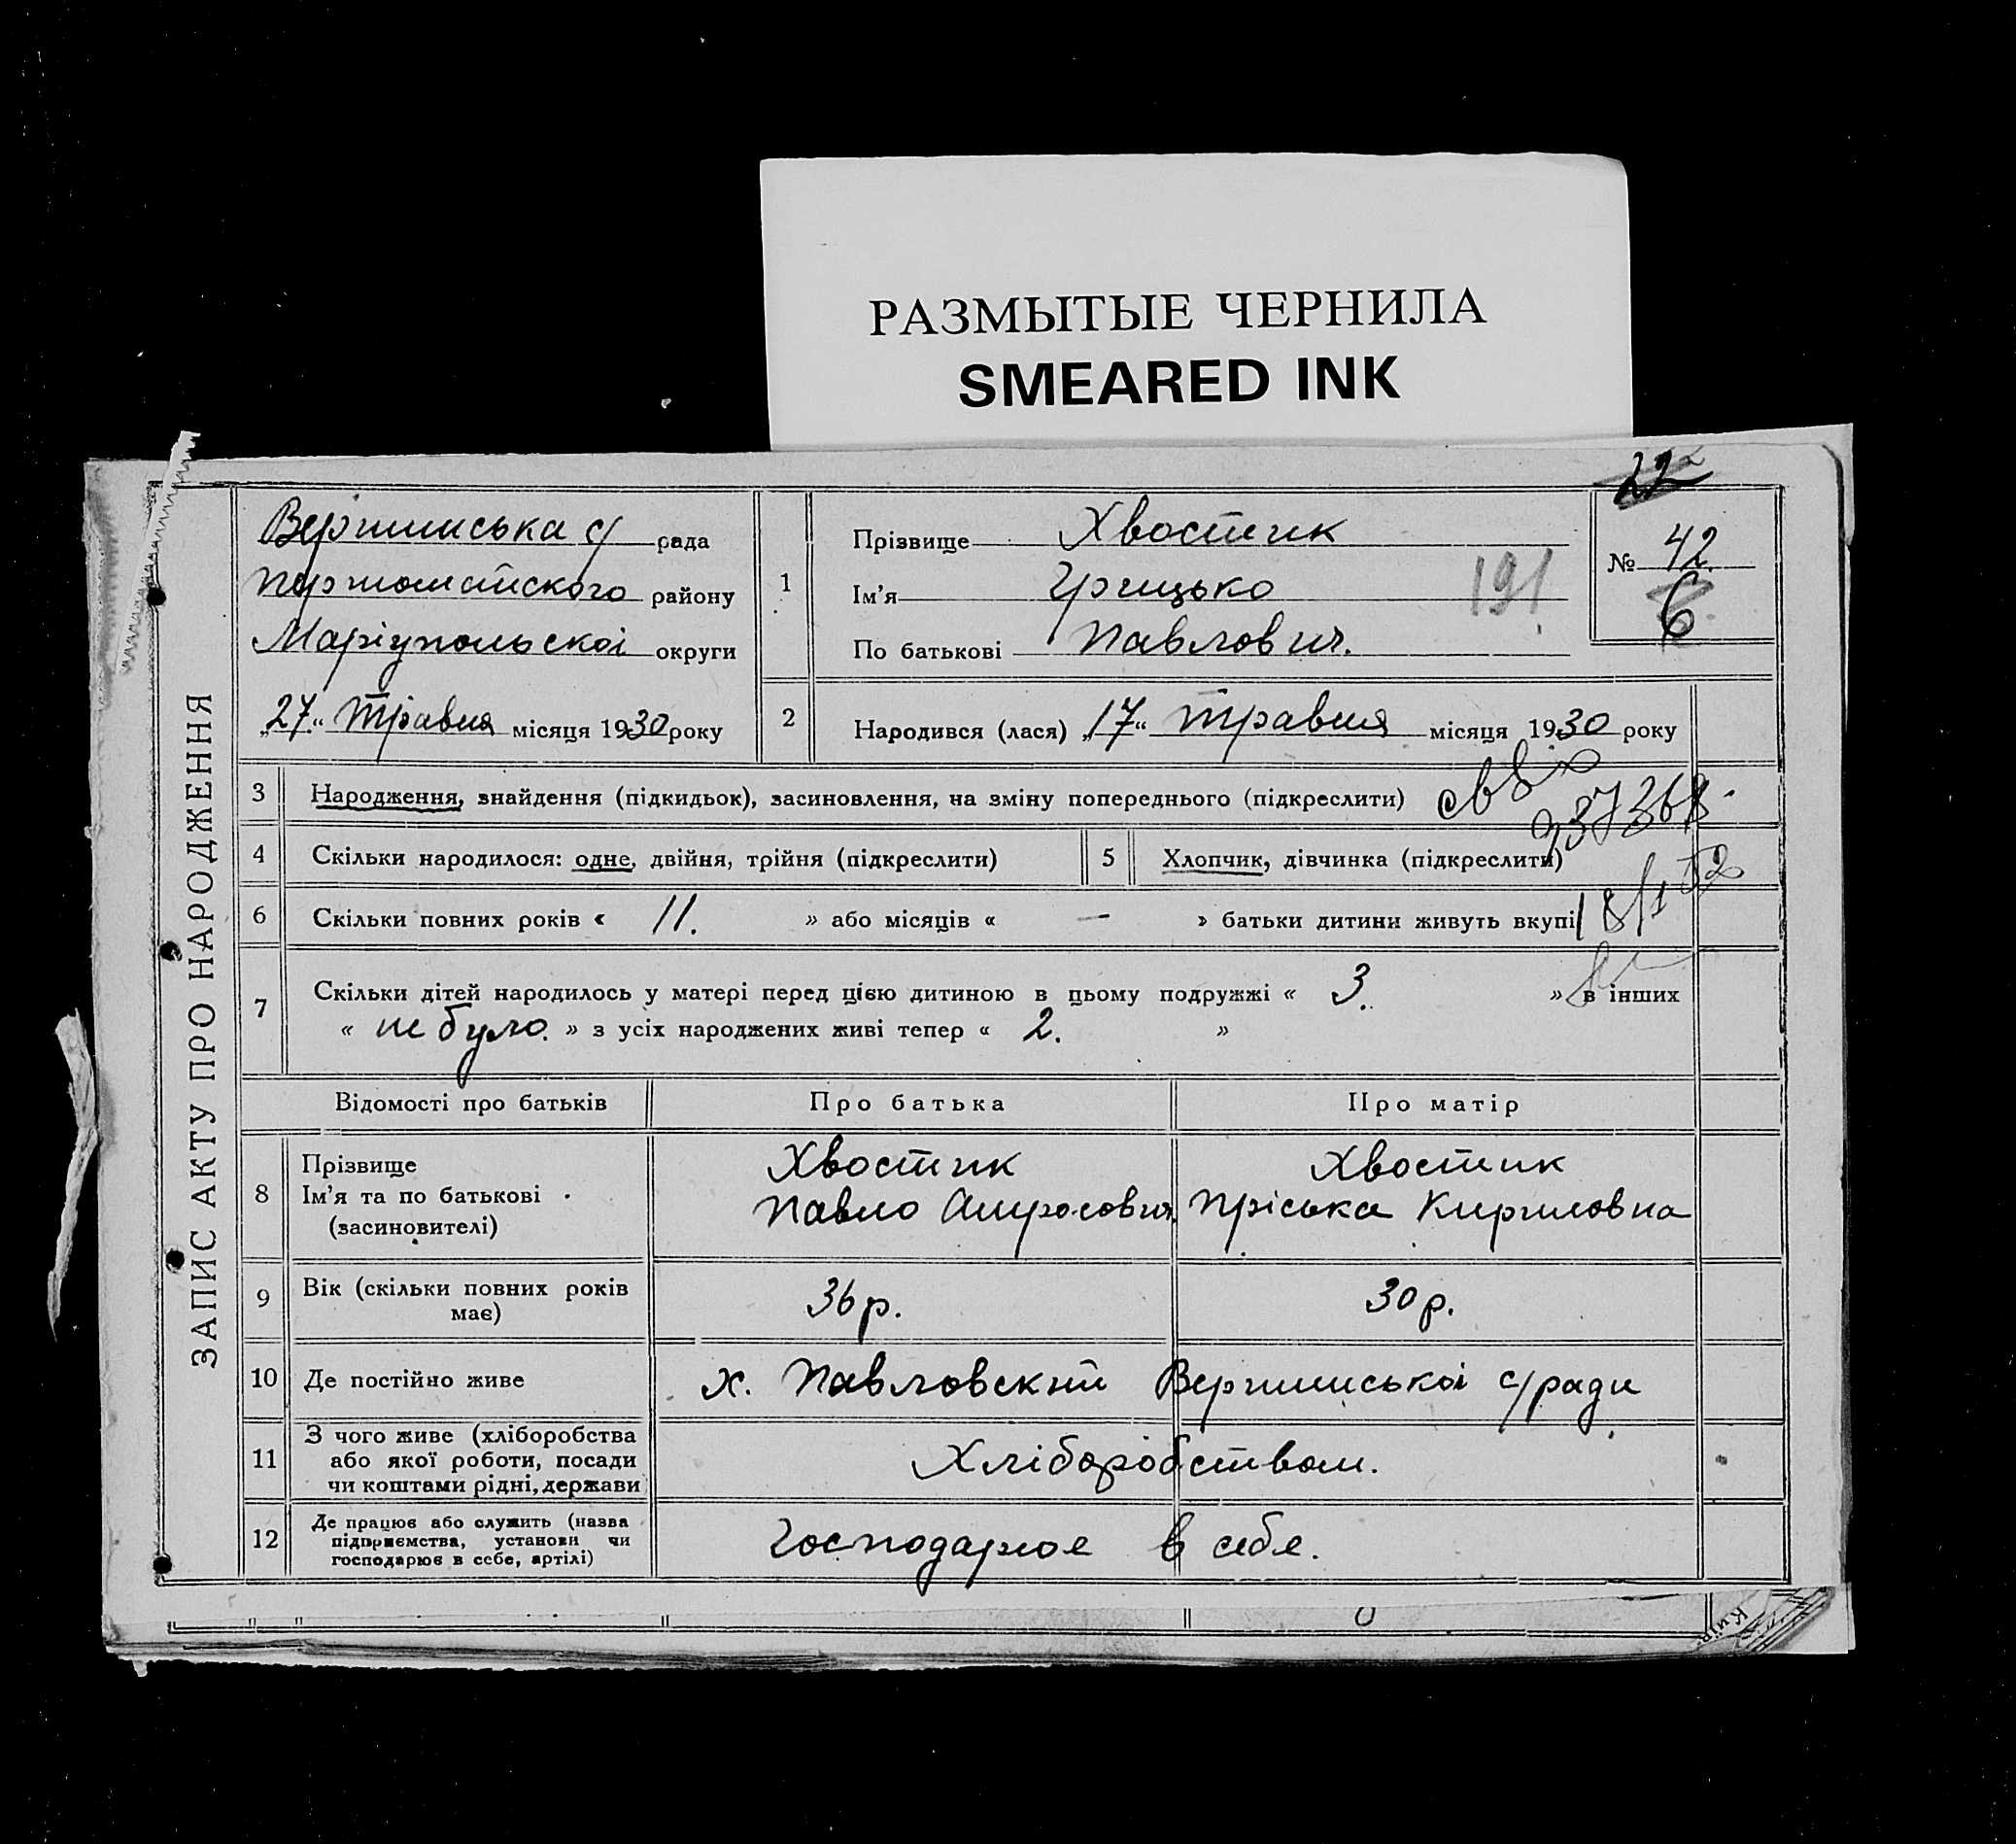 РАЗМЫТЫЕ ЧЕРНИЛА
SMEARED INK
ЗАПИС АКТУ ПРО НАРОДЖЕННЯ
22
Вершинська с/ рада
Першомайского району
Маріупольскоі округи
„27“ Травня місяця 1930 року
1
Прізвище Хвостик
Ім’я Грицько
191
По батькові Павлович.
№ 42.
6
2 Народився (лася) „17“ травня місяця 1930 року
3 Народження, знайдення (підкидьок), засиновлення, на зміну попереднього (підкреслити)
4 Скільки народилося: одне, двійня, трійня (підкреслити)
5 Хлопчик, дівчинка (підкреслити)
6 Скільки повних років « 11. » або місяців « — » батьки дитини живуть вкупі
7 Скільки дітей народилось у матері перед цією дитиною в цьому подружжі « 3. » в інших
« не було. » з усіх народжених живі тепер « 2. »
Відомості про батьків Про батька Про матір
8 Прізвище Хвостик Хвостик
Ім’я та по батькові Павло Пріська Кириловна
(засиновителі)
9 Вік (скільки повних років має) 36 р. 30 р.
10 Де постійно живе х. Павловский Вершинськоі с/ради
11 З чого живе (хліборобства
або якої роботи, посади
чи коштами рідні, держави
Хліборобством.
12 Де працює або служить (назва
підприємства, установи чи
господарює в себе, артілі)
Господарює в себе.
Київ